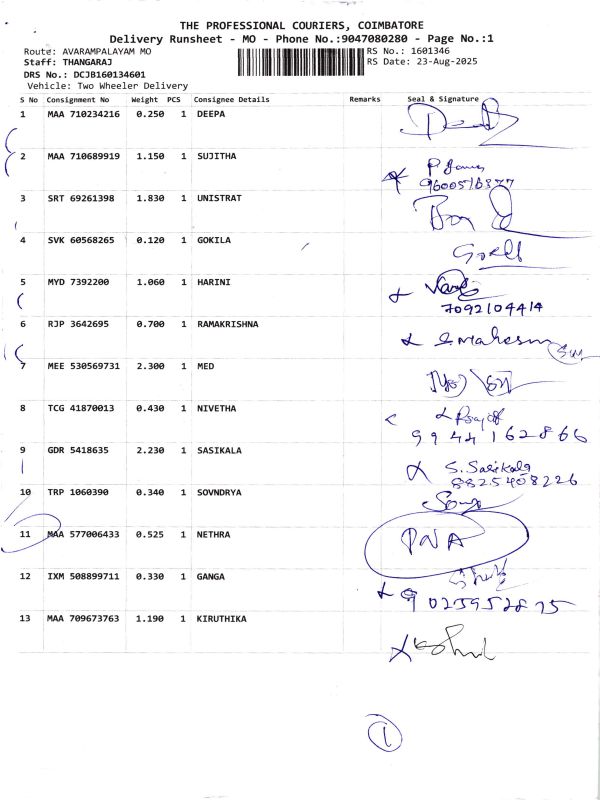 THE PROFESSIONAL COURIERS, COIMBATORE
Delivery Runsheet - MO - Phone No.:9047080280 - Page No.:1
Route: AVARAMPALAYAM MO RS No.: 1601346
Staff: THANGARAJ RS Date: 23-Aug-2025
DRS No.: DCJB160134601
Vehicle: Two Wheeler Delivery
S No Consignment No Weight PCS Consignee Details Remarks Seal & Signature
1 MAA 710234216 0.250 1 DEEPA
2 MAA 710689919 1.150 1 SUJITHA
9600516377
3 SRT 69261398 1.830 1 UNISTRAT
4 SVK 60568265 0.120 1 GOKILA
5 MYD 7392200 1.060 1 HARINI
7092104414
6 RJP 3642695 0.700 1 RAMAKRISHNA
7 MEE 530569731 2.300 1 MED
8 TCG 41870013 0.430 1 NIVETHA
9944162866
9 GDR 5418635 2.230 1 SASIKALA S. Sasikala
8825408226
10 TRP 1060390 0.340 1 SOVNDRYA
11 MAA 577006433 0.525 1 NETHRA
12 IXM 508899711 0.330 1 GANGA
13 MAA 709673763 1.190 1 KIRUTHIKA
1